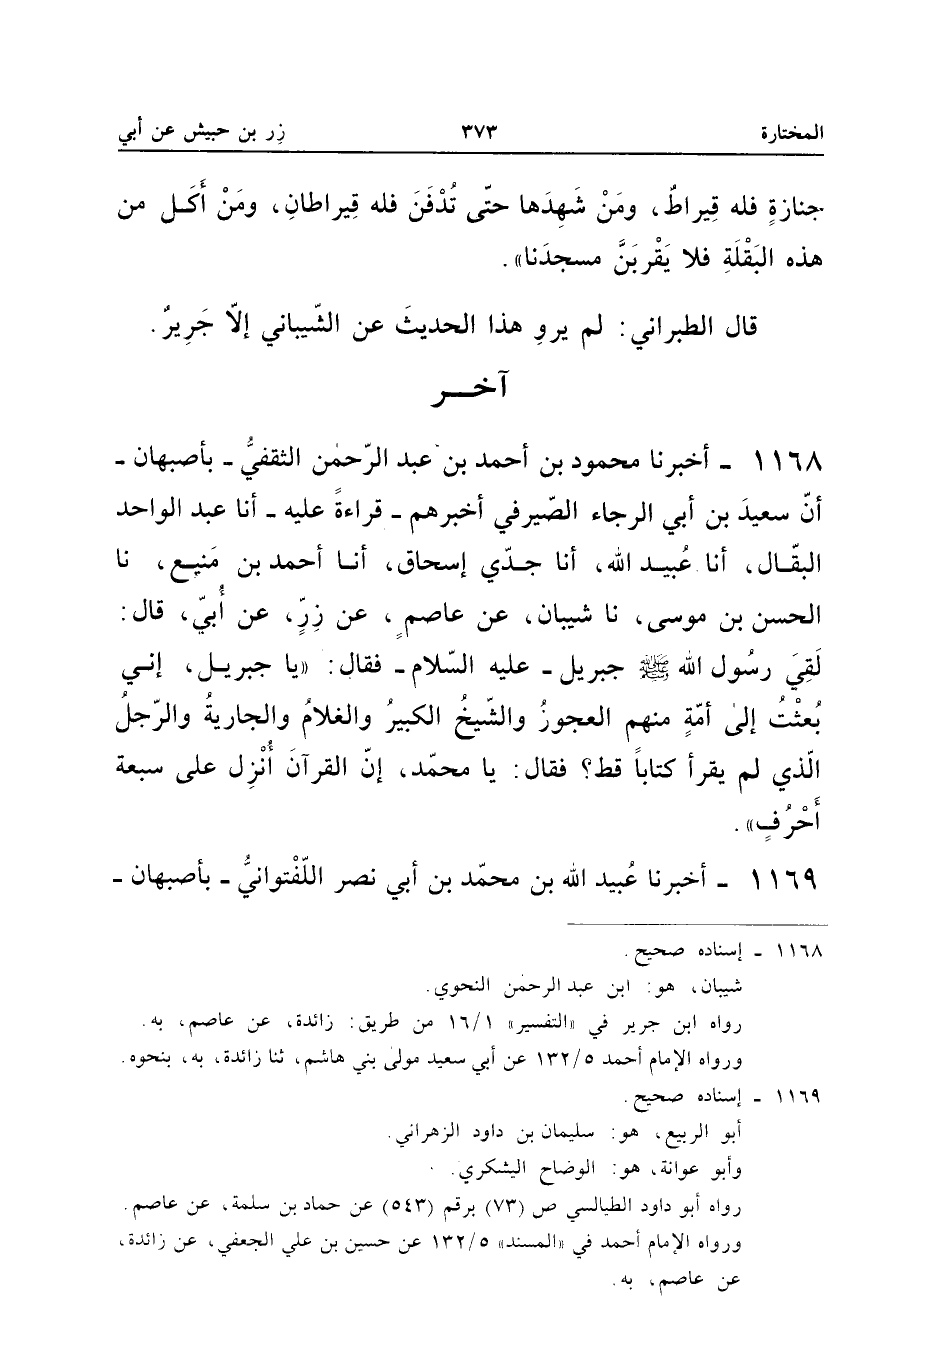 المختارة ٣٧٣ زِر بن حبيش عن أبي
جنازةٍ فله قِيراطٌ، ومَنْ شَهِدَها حتّى تُدْفَنَ فله قِيراطانِ، ومَنْ أَكَل من
هذه البَقْلَةِ فلا يَقْربَنَّ مسجدَنا».
قال الطبراني: لم يروِ هذا الحديثَ عن الشّيباني إلّا جَرِيرٌ.
آخـــر
١١٦٨ ـ أخبرنا محمود بن أحمد بن عبد الرّحمٰن الثقفيُّ ـ بأصبهان ـ
أنّ سعيدَ بن أبي الرجاء الصّيرفي أخبرهم ـ قراءةً عليه ـ أنا عبد الواحد
البقّـال، أنا عُبيـد الله، أنا جـدّي إسحاق، أنـا أحمد بن مَنيـع، نا
الحسن بن موسى، نا شيبان، عن عاصمٍ، عن زِرٍّ، عن أُبيّ، قال:
لَقِيَ رسُول الله ﷺ جبريل ـ عليه السّلام ـ فقال: «يا جبريـل، إنـي
بُعثْتُ إلىٰ أمّةٍ منهم العجوزُ والشّيخُ الكبيرُ والغلامُ والجاريةُ والرّجلُ
الّذي لم يقرأ كتاباً قط؟ فقال: يا محمّد، إنّ القرآنَ أُنْزِل على سبعة
أَحْرُفٍ».
١١٦٩ ـ أخبرنا عُبيد الله بن محمّد بن أبي نصر اللّفْتوانيُّ ـ بأصبهان ـ
١١٦٨ ـ إسناده صحيح.
شيبان، هو: ابن عبد الرحمٰن النحوي.
رواه ابن جرير في «التفسير» ١٦/١ من طريق: زائدة، عن عاصم، به.
ورواه الإمام أحمد ١٣٢/٥ عن أبي سعيد مولىٰ بني هاشم، ثنا زائدة، به، بنحوه.
١١٦٩ ـ إسناده صحيح.
أبو الربيع، هو: سليمان بن داود الزهراني.
وأبو عوانة، هو: الوضاح اليشكري.
رواه أبو داود الطيالسي ص (٧٣) برقم (٥٤٣) عن حماد بن سلمة، عن عاصم.
ورواه الإمام أحمد في «المسند» ١٣٢/٥ عن حسين بن علي الجعفي، عن زائدة،
عن عاصم، به.